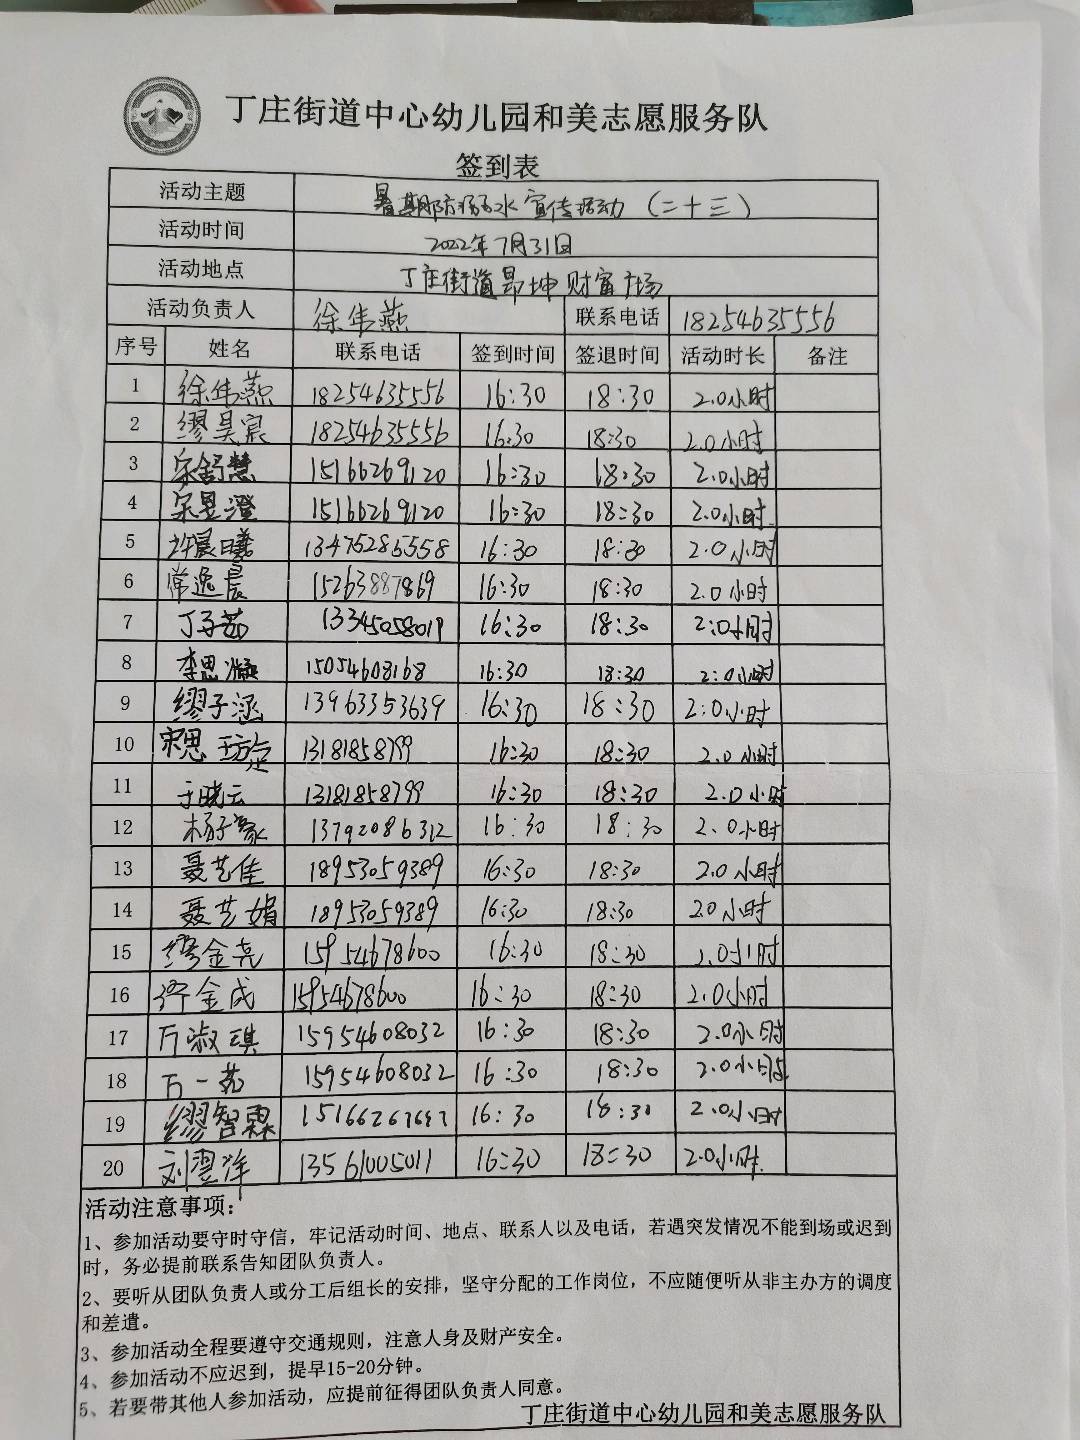 丁庄街道中心幼儿园和美志愿服务队
签到表
活动主题 暑期防溺水宣传活动（二十三）
活动时间 2022年7月31日
活动地点 丁庄街道昂坤财富广场
活动负责人 徐伟燕 联系电话 18254635556
序号 姓名 联系电话 签到时间 签退时间 活动时长 备注
1 徐伟燕 18254635556 16:30 18:30 2.0小时
2 缪昊宸 18254635556 16:30 18:30 2.0小时
3 宋舒慧 15166269120 16:30 18:30 2.0小时
4 宋昱澄 15166269120 16:30 18:30 2.0小时
5 许晨曦 13475285558 16:30 18:30 2.0小时
6 常逸晨 15263887869 16:30 18:30 2.0小时
7 丁子茹 13345058019 16:30 18:30 2:0小时
8 李思凝 15054608168 16:30 18:30 2:0小时
9 缪子涵 13963353639 16:30 18:30 2:0小时
10 宋思 13181858799 16:30 18:30 2.0小时
11 于晓云 13181858799 16:30 18:30 2.0小时
12 杨子豪 13792086312 16:30 18:30 2.0小时
13 聂艺佳 18953059389 16:30 18:30 2.0小时
14 聂艺娟 18953059389 16:30 18:30 20小时
15 缪金亮 15954678600 16:30 18:30 2.0小时
16 金成 15954678600 16:30 18:30 2.0小时
17 万淑琪 15954608032 16:30 18:30 2.0小时
18 万一苑 15954608032 16:30 18:30 2.0小时
19 缪智霖 16:30 18:30 2.0小时
20 刘雪洋 13561005011 16:30 18:30 2.0小时.
活动注意事项：
1、参加活动要守时守信，牢记活动时间、地点、联系人以及电话，若遇突发情况不能到场或迟到
时，务必提前联系告知团队负责人。
2、要听从团队负责人或分工后组长的安排，坚守分配的工作岗位，不应随便听从非主办方的调度
和差遣。
3、参加活动全程要遵守交通规则，注意人身及财产安全。
4、参加活动不应迟到，提早15-20分钟。
5、若要带其他人参加活动，应提前征得团队负责人同意。
丁庄街道中心幼儿园和美志愿服务队